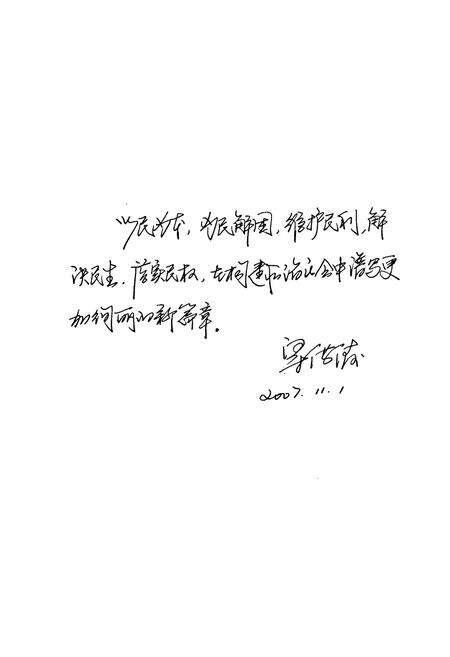 以民为本，为民解困，维护民利，解
决民生，落实民权，在构建和谐社会中谱写更
加绚丽的新篇章。
2007.11.1